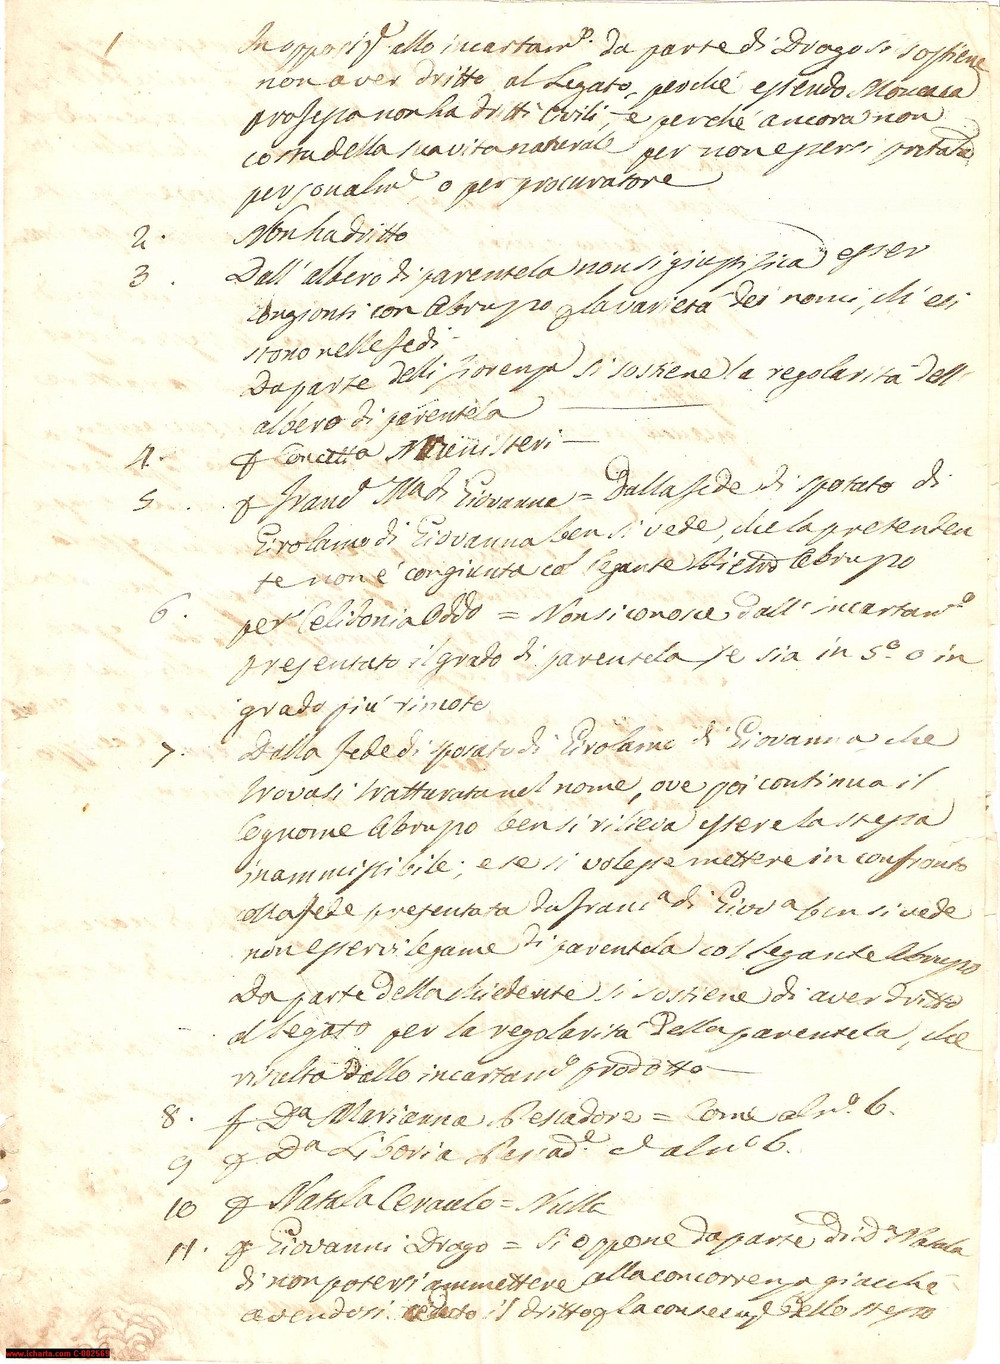 1 In opposizᵉ allo incartamᵗᵒ da parte di Drago si sostiene
non aver dritto al Legato, perché essendo Monaca
professa non ha dritti Civili, e perché ancora non
costa della sua vita naturale per non essersi
personalmᵉ o per procuratore
2. Non ha dritto
3. Dall'albero di parentela non si giustifica esser
congionti con Abruzzo p la varietà dei nomi, ch' esi
stono nelle fedi.
Da parte delli Fiorenza si sostiene la regolarità dell'
albero di parentela —
4. p Concetta Ministeri —
5. p Francᵃ Mᵃ di Giovanna = Dalla fede di sposato di
Girolamo di Giovanna ben si vede, che la pretenden
te non è congiunta col legante Pietro Abruzzo
6. per Celidonia Oddo = Non si conosce dall' incartamᵗᵒ
presentato il grado di parentela se sia in 5º o in
grado più rimoto
7. Dalla fede di sposato di Girolamo di Giovanna che
trovasi tratturata nel nome, ove poi continua il
Cognome Abruzzo ben si rileva essere la stessa
inammissibile; e se si volesse mettere in confronto
colla fede presentata da Francᵃ di Giovᵃ ben si vede
non esservi legame di parentela col legante Abruzzo
Da parte della chiedente si sostiene di aver dritto
al legato per la regolarità della parentela, che
risulta dallo incartamᵗᵒ prodotto —
8. p Dᵃ Marianna Pescadore = Come al nº 6.
9 p Dᵃ Liboria Pescadᵉ al nº 6.
10 p Natala Ceraulo = Nulla
11. p Giovanni Drago = Si oppone da parte di Dᵃ Natala
di non potersi ammettere alla concorrenza giacché
avendosi ceduto il dritto p la consecuzᵉ dello stesso
www.icharta.com C-002569